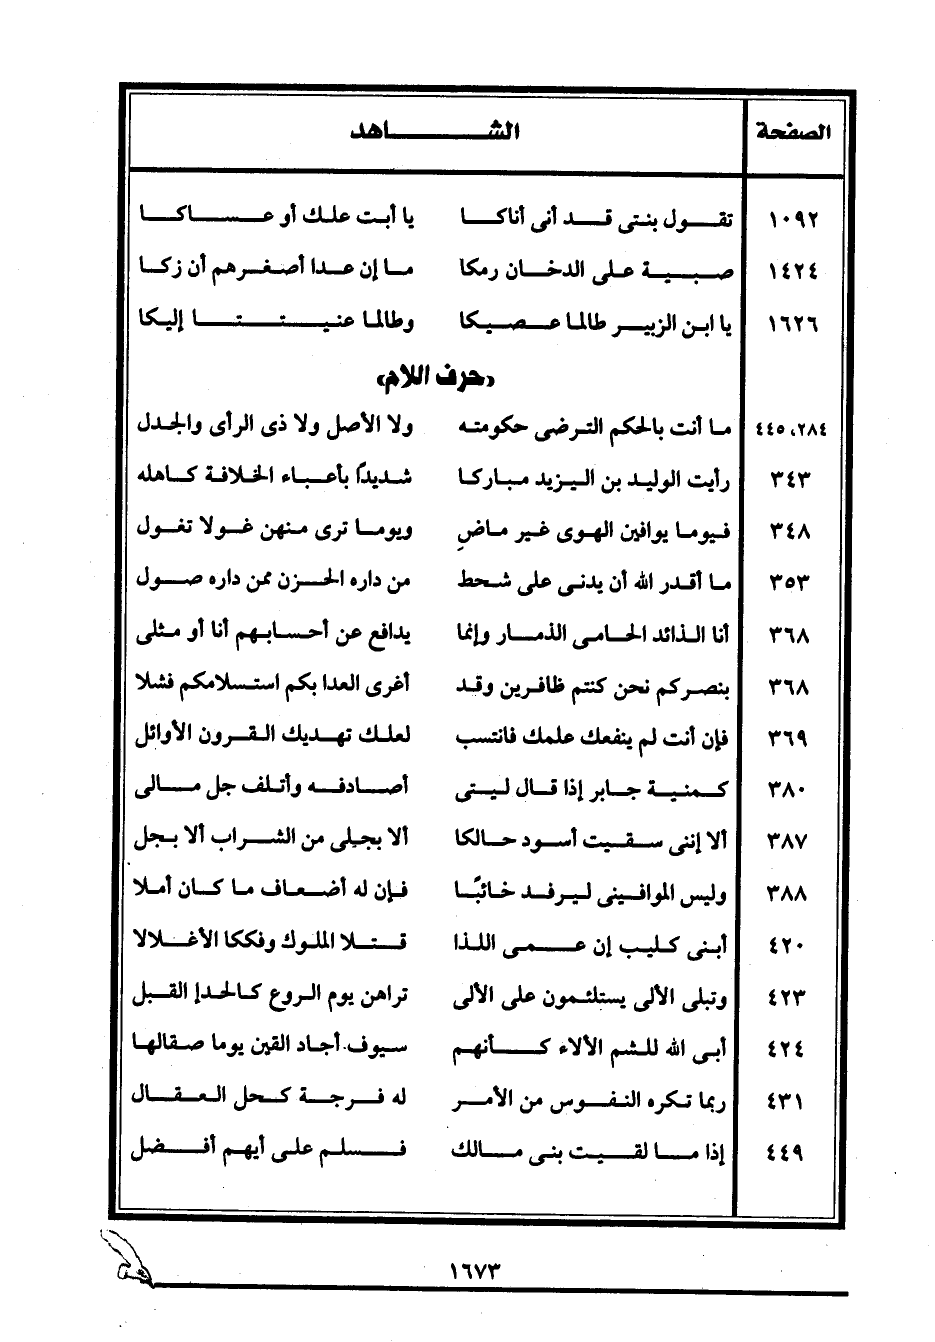 الصفحة الشاهد
١٠٩٢ تقول بنتى قد أنى أناكا يا أبت علك أو عساكا
١٤٢٤ صبية على الدخان رمكا ما إن عدا أصغرهم أن زكا
١٦٢٦ يا ابن الزبير طالما عصيكا وطالما عنيتنا إليكا
«حرف اللام»
٢٨٤، ٤٤٥ ما أنت بالحكم الترضى حكومته ولا الأصل ولا ذى الرأى والجدل
٣٤٣ رأيت الوليد بن اليزيد مباركا شديدًا بأعباء الخلافة كاهله
٣٤٨ فيوما يوافين الهوى غير ماضٍ ويوما ترى منهن غولا تغول
٣٥٣ ما أقدر الله أن يدنى على شحط من داره الحزن ممن داره صول
٣٦٨ أنا الذائد الحامى الذمار وإنما يدافع عن أحسابهم أنا أو مثلى
٣٦٨ بنصركم نحن كنتم ظافرين وقد أغرى العدا بكم استسلامكم فشلا
٣٦٩ فإن أنت لم ينفعك علمك فانتسب لعلك تهديك القرون الأوائل
٣٨٠ كمنية جابر إذا قال ليتى أصادفه وأتلف جل مالى
٣٨٧ ألا إننى سقيت أسود حالكا ألا بجلى من الشراب ألا بجل
٣٨٨ وليس الموافينى ليرفد خائبًا فإن له أضعاف ما كان أملا
٤٢٠ أبنى كليب إن عمى اللذا قتلا الملوك وفككا الأغلالا
٤٢٣ وتبلى الألى يستلئمون على الألى تراهن يوم الروع كالحدإ القبل
٤٢٤ أبى الله للشم الألاء كأنهم سيوف أجاد القين يوما صقالها
٤٣١ ربما تكره النفوس من الأمر له فرجة كحل العقال
٤٤٩ إذا ما لقيت بنى مالك فسلم على أيهم أفضل
١٦٧٣